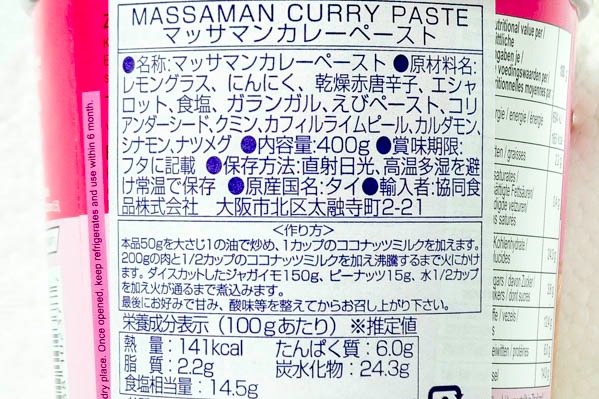 MASSAMAN CURRY PASTE
マッサマンカレーペースト
●名称:マッサマンカレーペースト ●原材料名:
レモングラス、にんにく、乾燥赤唐辛子、エシャ
ロット,食塩、ガランガル,えびペースト,コリ
アンダーシード,クミン,カフィルライムピール,カルダモン,
シナモン,ナツメグ ●内容量:400g ●賞味期限:
フタに記載 ●保存方法:直射日光、高温多湿を避
け常温で保存 ●原産国名:タイ ●輸入者:協同食
品株式会社 大阪市北区太融寺町2-21
<作り方>
本品50gを大さじ1の油で炒め、1カップのココナッツミルクを加えます。
200gの肉と1/2カップのココナッツミルクを加え沸騰するまで火にかけ
ます。ダイスカットしたジャガイモ150g、ピーナッツ15g、水1/2カップ
を加え火が通るまで煮込みます。
最後にお好みで甘み、酸味等を整えてからお召し上がり下さい。
栄養成分表示(100gあたり) ※推定値
熱量:141kcal たんぱく質:6.0g
脂質:2.2g 炭水化物:24.3g
食塩相当量:14.5g
dry place. Once opened, keep refrigerates and use within 6 month.
utritional value per/
voedingswaarden per/
ritionnelles moyennes par
rgie / energie / énergie
/ graisses
saturates/
ättigte Fettsäuren/
digde vetzuren/
s saturés
Kohlenhydrate
lucides
gars / davon Zucker/
ikers / dont sucres
/ vezels /
eiwitten / protéines